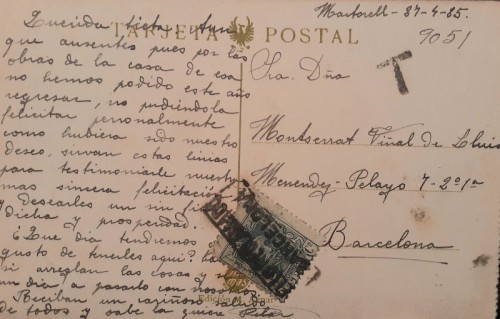 TARJETA POSTAL
Martorell - 27-4-25.
9051
T
Querida tieta: Aun
que ausentes pues por las
obras de la casa de esa
no hemos podido este año
regresar, no pudiéndola
felicitar personalmente
como hubiera sido nuestro
deseo, sirvan estas lineas
para testimoniarle nuestra
mas sincera felicitación
y desearles un sin fin
dicha y prosperidad.
¿Que dia tendremos
gusto de tenerles aqui?
si arreglan las cosas y
un dia a pasarlo con nosotros
Reciban un cariñoso saludo
de todos y sabe la quiere Pilar
Sra. Dña
Montserrat Viñal de Lluis
Menendez-Pelayo 7-2º1ª
Barcelona
Edición